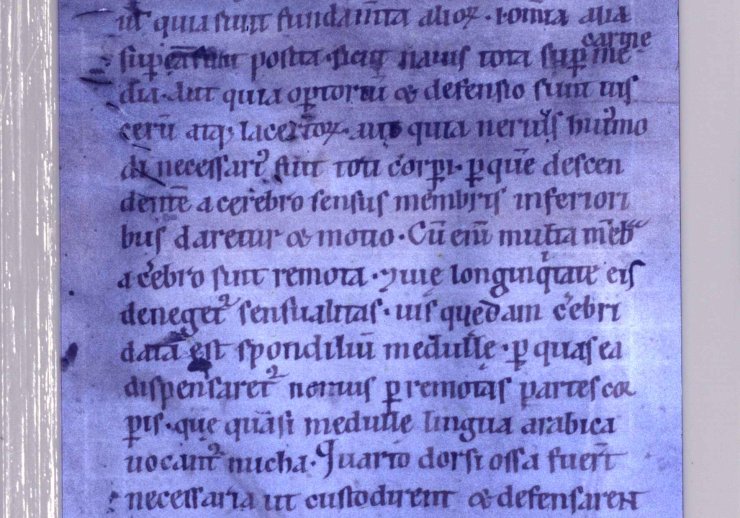 ut quia sunt fundam̄ta alioꝝ · ⁊ om̄ia alia
sup̄ posita · sicut nauis tota sup̄ carine me
dia · Aut quia op̄toriū & defensio sunt uis
cerū atq; lacertoꝝ · aut quia neruis
di necessari᷒ toti corꝑi · ꝑ quē descen
dentē a cerebro sensus membris inferiori
bus daretur & motio · Cū enī multa mēbᵃ
a c̄ebro sint remota · ⁊ uię longinqⁱtate eis
denegetᷣ sensualitas · uis quędam c̄ebri
data est spondiliū medullę · ꝑ quas ea
dispensaretᷣ neruis ꝑ remotas partes cor
ꝑis · quę quāsi medullę lingua arabica
uocantᷣ nucha · Quarto dorsi ossa fuer̄t
necessaria ut custodirent & defensarent